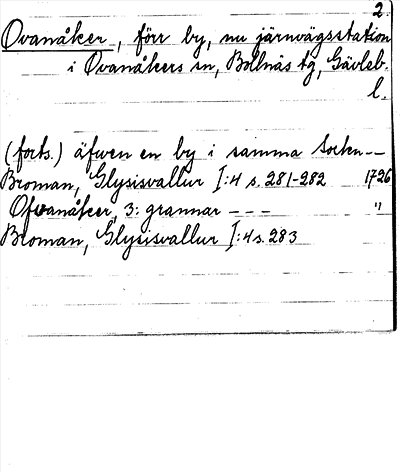 2.
Ovanåker, förr by, nu järnvägsstation
i Ovanåkers sn, Bollnäs tg, Gävleb.
l.
(forts.) äfwen en by i samma Sockn - -
Broman, Glysisvallur I:4 s. 281-282 1726
Ofwanåker, 3: grannar - - - "
Broman, Glysisvallur I:4 s. 283